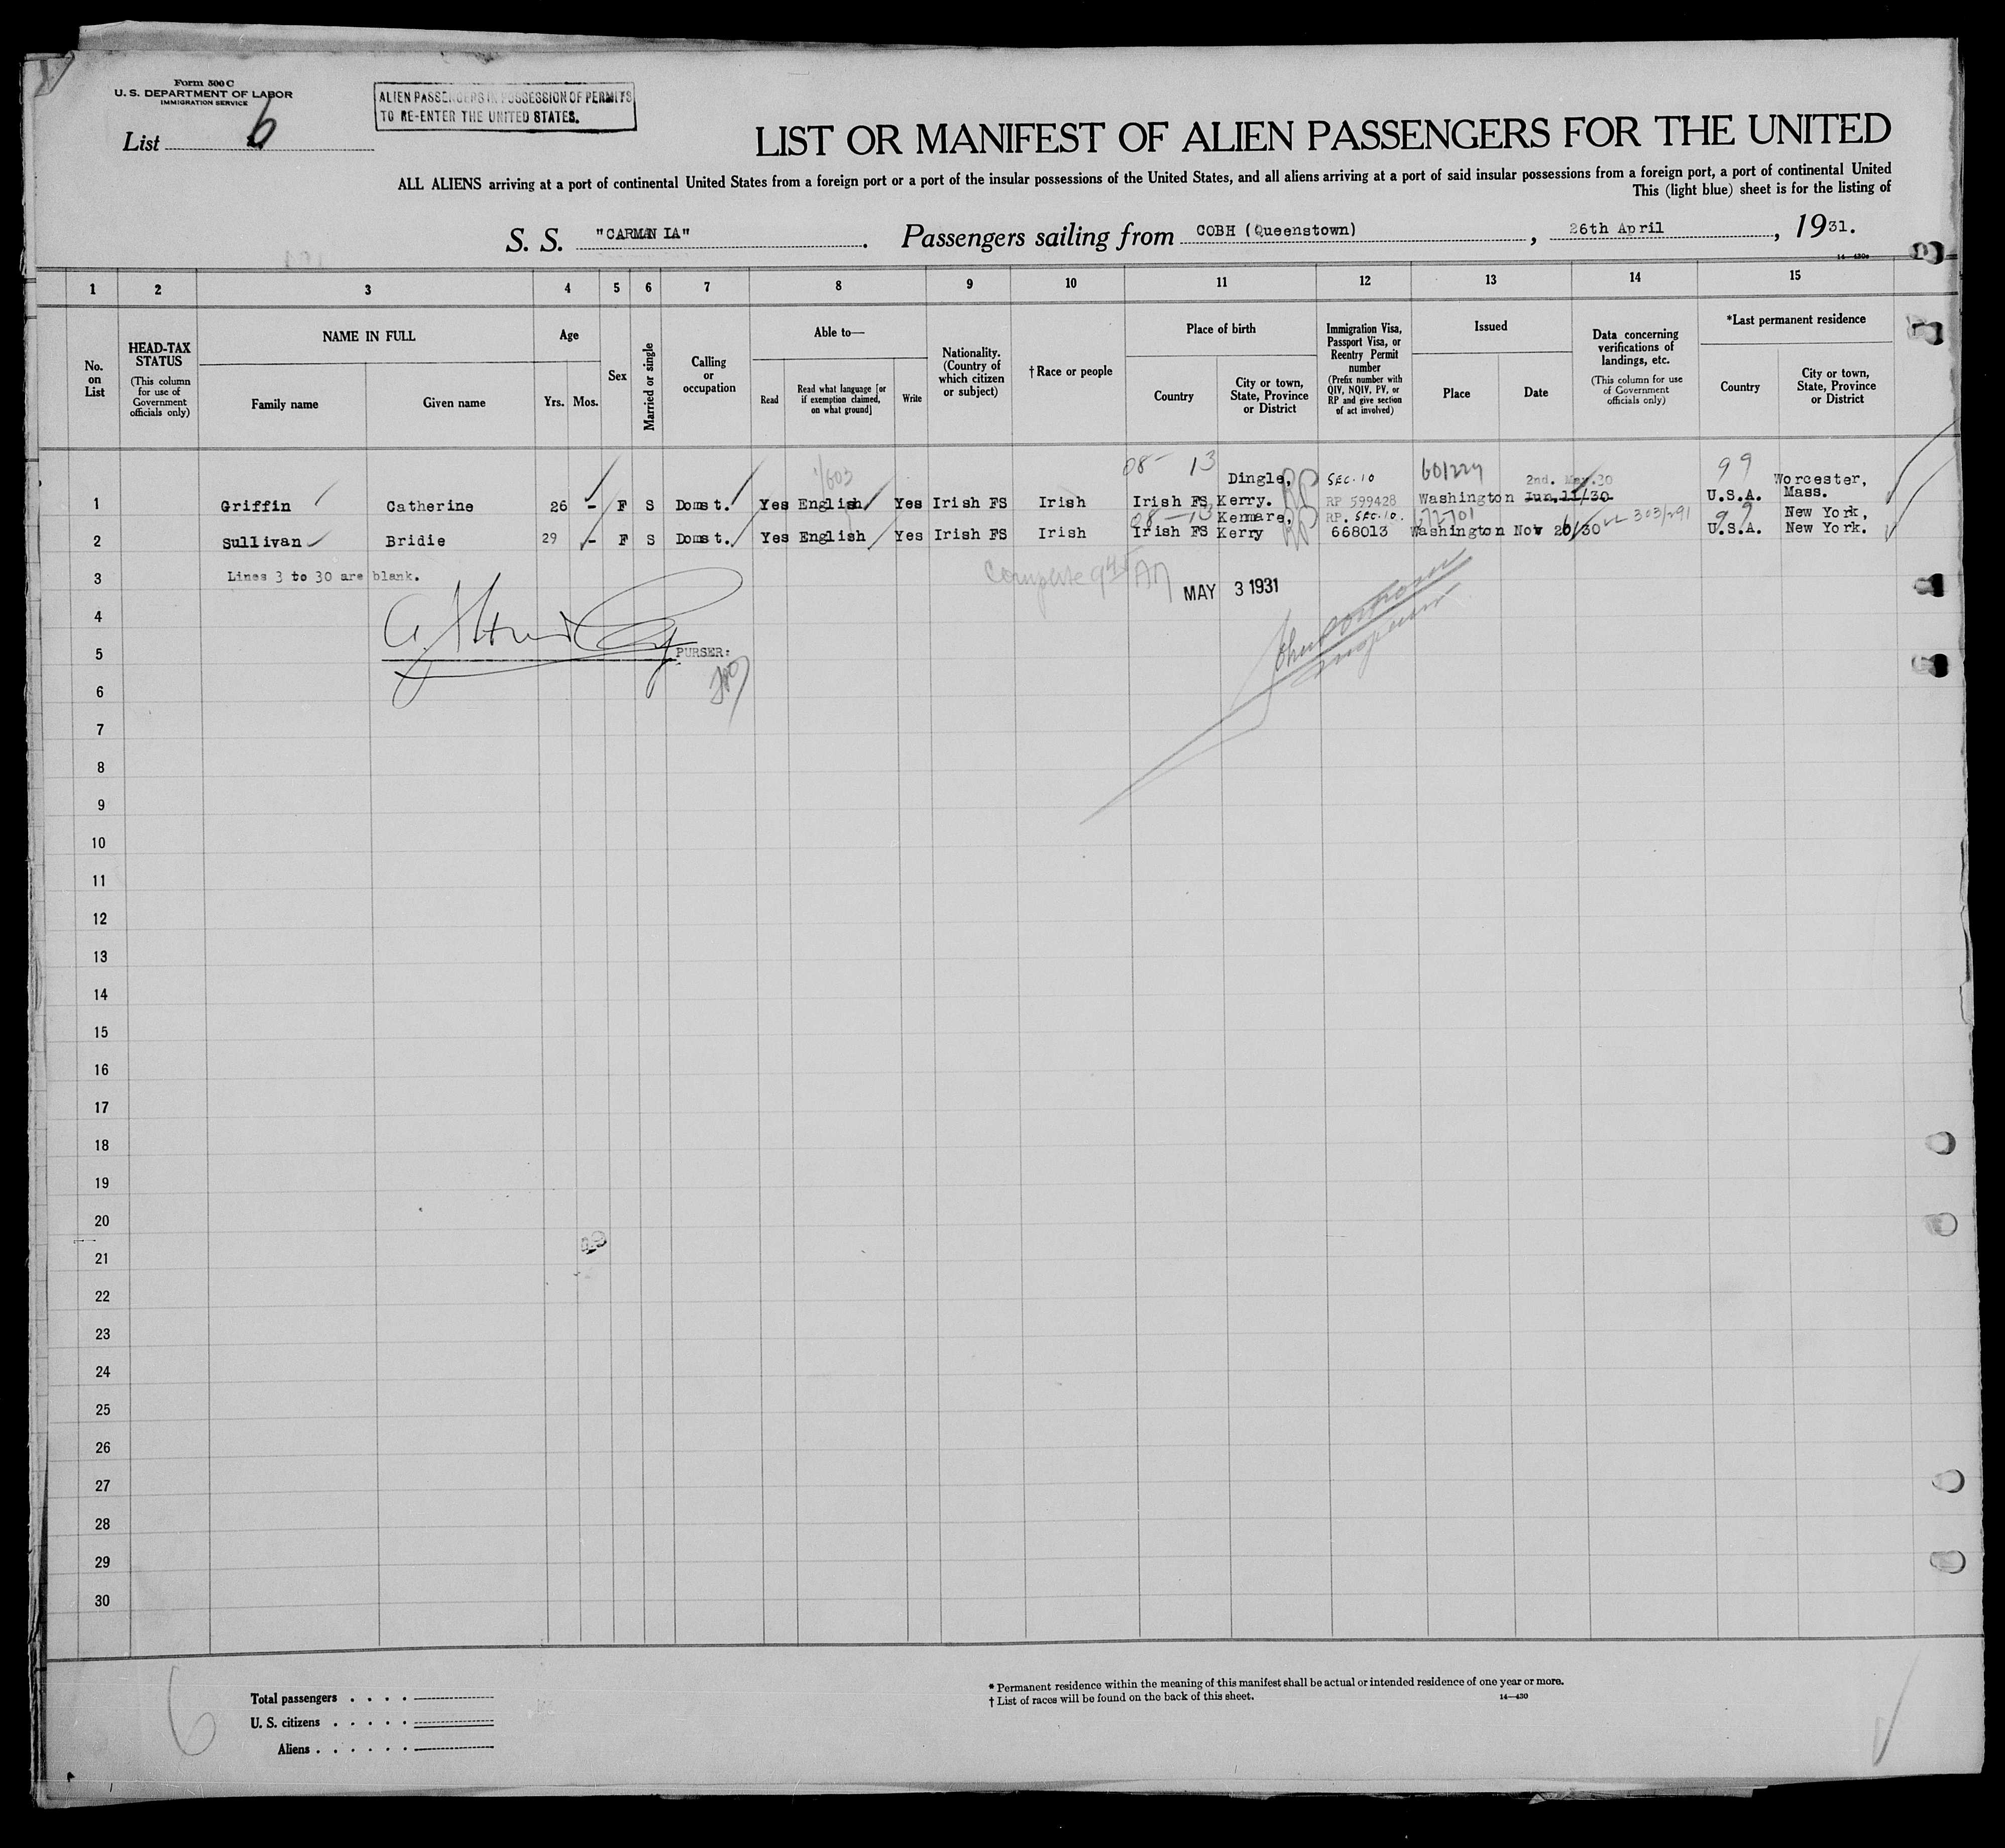 Form 500 C
U. S. DEPARTMENT OF LABOR
IMMIGRATION SERVICE
ALIEN PASSENGERS IN POSSESSION OF PERMITS
TO RE-ENTER THE UNITED STATES.
List 6
LIST OR MANIFEST OF ALIEN PASSENGERS FOR THE UNITED
ALL ALIENS arriving at a port of continental United States from a foreign port or a port of the insular possessions of the United States, and all aliens arriving at a port of said insular possessions from a foreign port, a port of continental United
This (light blue) sheet is for the listing of
S. S. "CARMANIA". Passengers sailing from COBH (Queenstown), 26th April, 1931.
14—430a
1 2 3 4 5 6 7 8 9 10 11 12 13 14 15
No. on List
HEAD-TAX STATUS
(This column for use of Government officials only)
NAME IN FULL
Family name Given name
Age
Yrs. Mos.
Sex
Married or single
Calling or occupation
Able to—
Read
Read what language [or if exemption claimed, on what ground]
Write
Nationality. (Country of which citizen or subject)
† Race or people
Place of birth
Country
City or town, State, Province or District
Immigration Visa, Passport Visa, or Reentry Permit number
(Prefix number with QIV, NQIV, PV, or RP and give section of act involved)
Issued
Place Date
Data concerning verifications of landings, etc.
(This column for use of Government officials only)
*Last permanent residence
Country
City or town, State, Province or District
08- 13 99
1/603 Dingle, SEC.10 601229 2nd. May.30 Worcester,
1 Griffin Catherine 26 - F S Domst. Yes English Yes Irish FS Irish Irish FS Kerry. RP RP 599428 Washington Jun.11/30 U.S.A. Mass.
08-13 Kenmare, RP. SEC.10. 272701 303/291 99 New York,
2 Sullivan Bridie 29 - F S Domst. Yes English Yes Irish FS Irish Irish FS Kerry RP 668013 Washington Nov 26/30 U.S.A. New York.
3 Lines 3 to 30 are blank.
Complete 945 AM MAY 3 1931
4
5 PURSER:
6
7
8
9
10
11
12
13
14
15
16
17
18
19
20
21
22
23
24
25
26
27
28
29
30
6
Total passengers
U. S. citizens
Aliens
* Permanent residence within the meaning of this manifest shall be actual or intended residence of one year or more.
† List of races will be found on the back of this sheet.
14—430